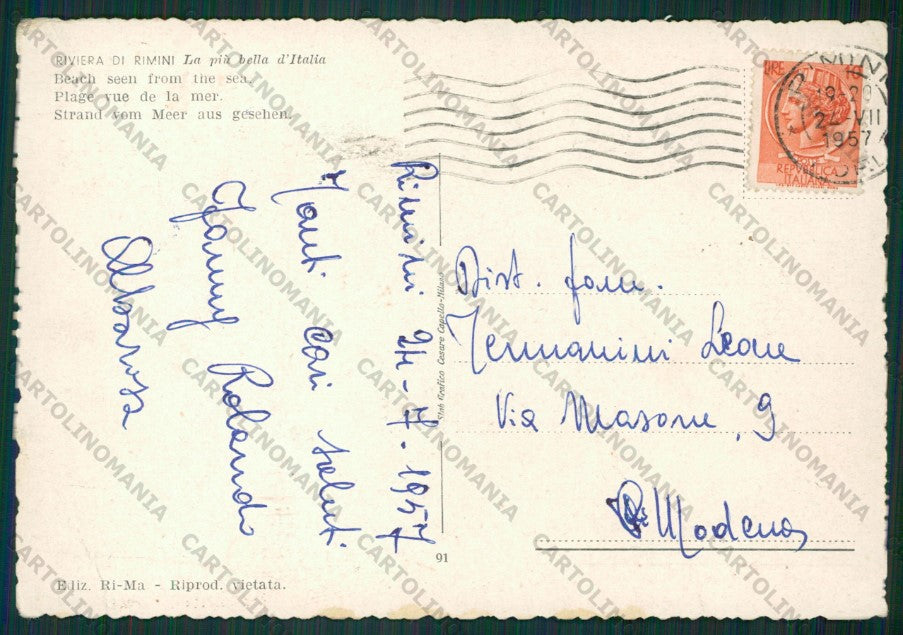 RIVIERA DI RIMINI La più bella d'Italia
Beach seen from the sea.
Plage vue de la mer.
Strand vom Meer aus gesehen.
Rimini 24-7-1957
Tanti cari saluti
Fanny Rolando
Albarosa
Stab Grafico Cesare Capello-Milano
91
Ediz. Ri-Ma - Riprod. vietata.
LIRE
REPVBBLICA
ITALIANA
RIMINI
19-20
VII
1957
Dist. fam.
Leone
Via Masone, 9
Modena
CARTOLINOMANIA